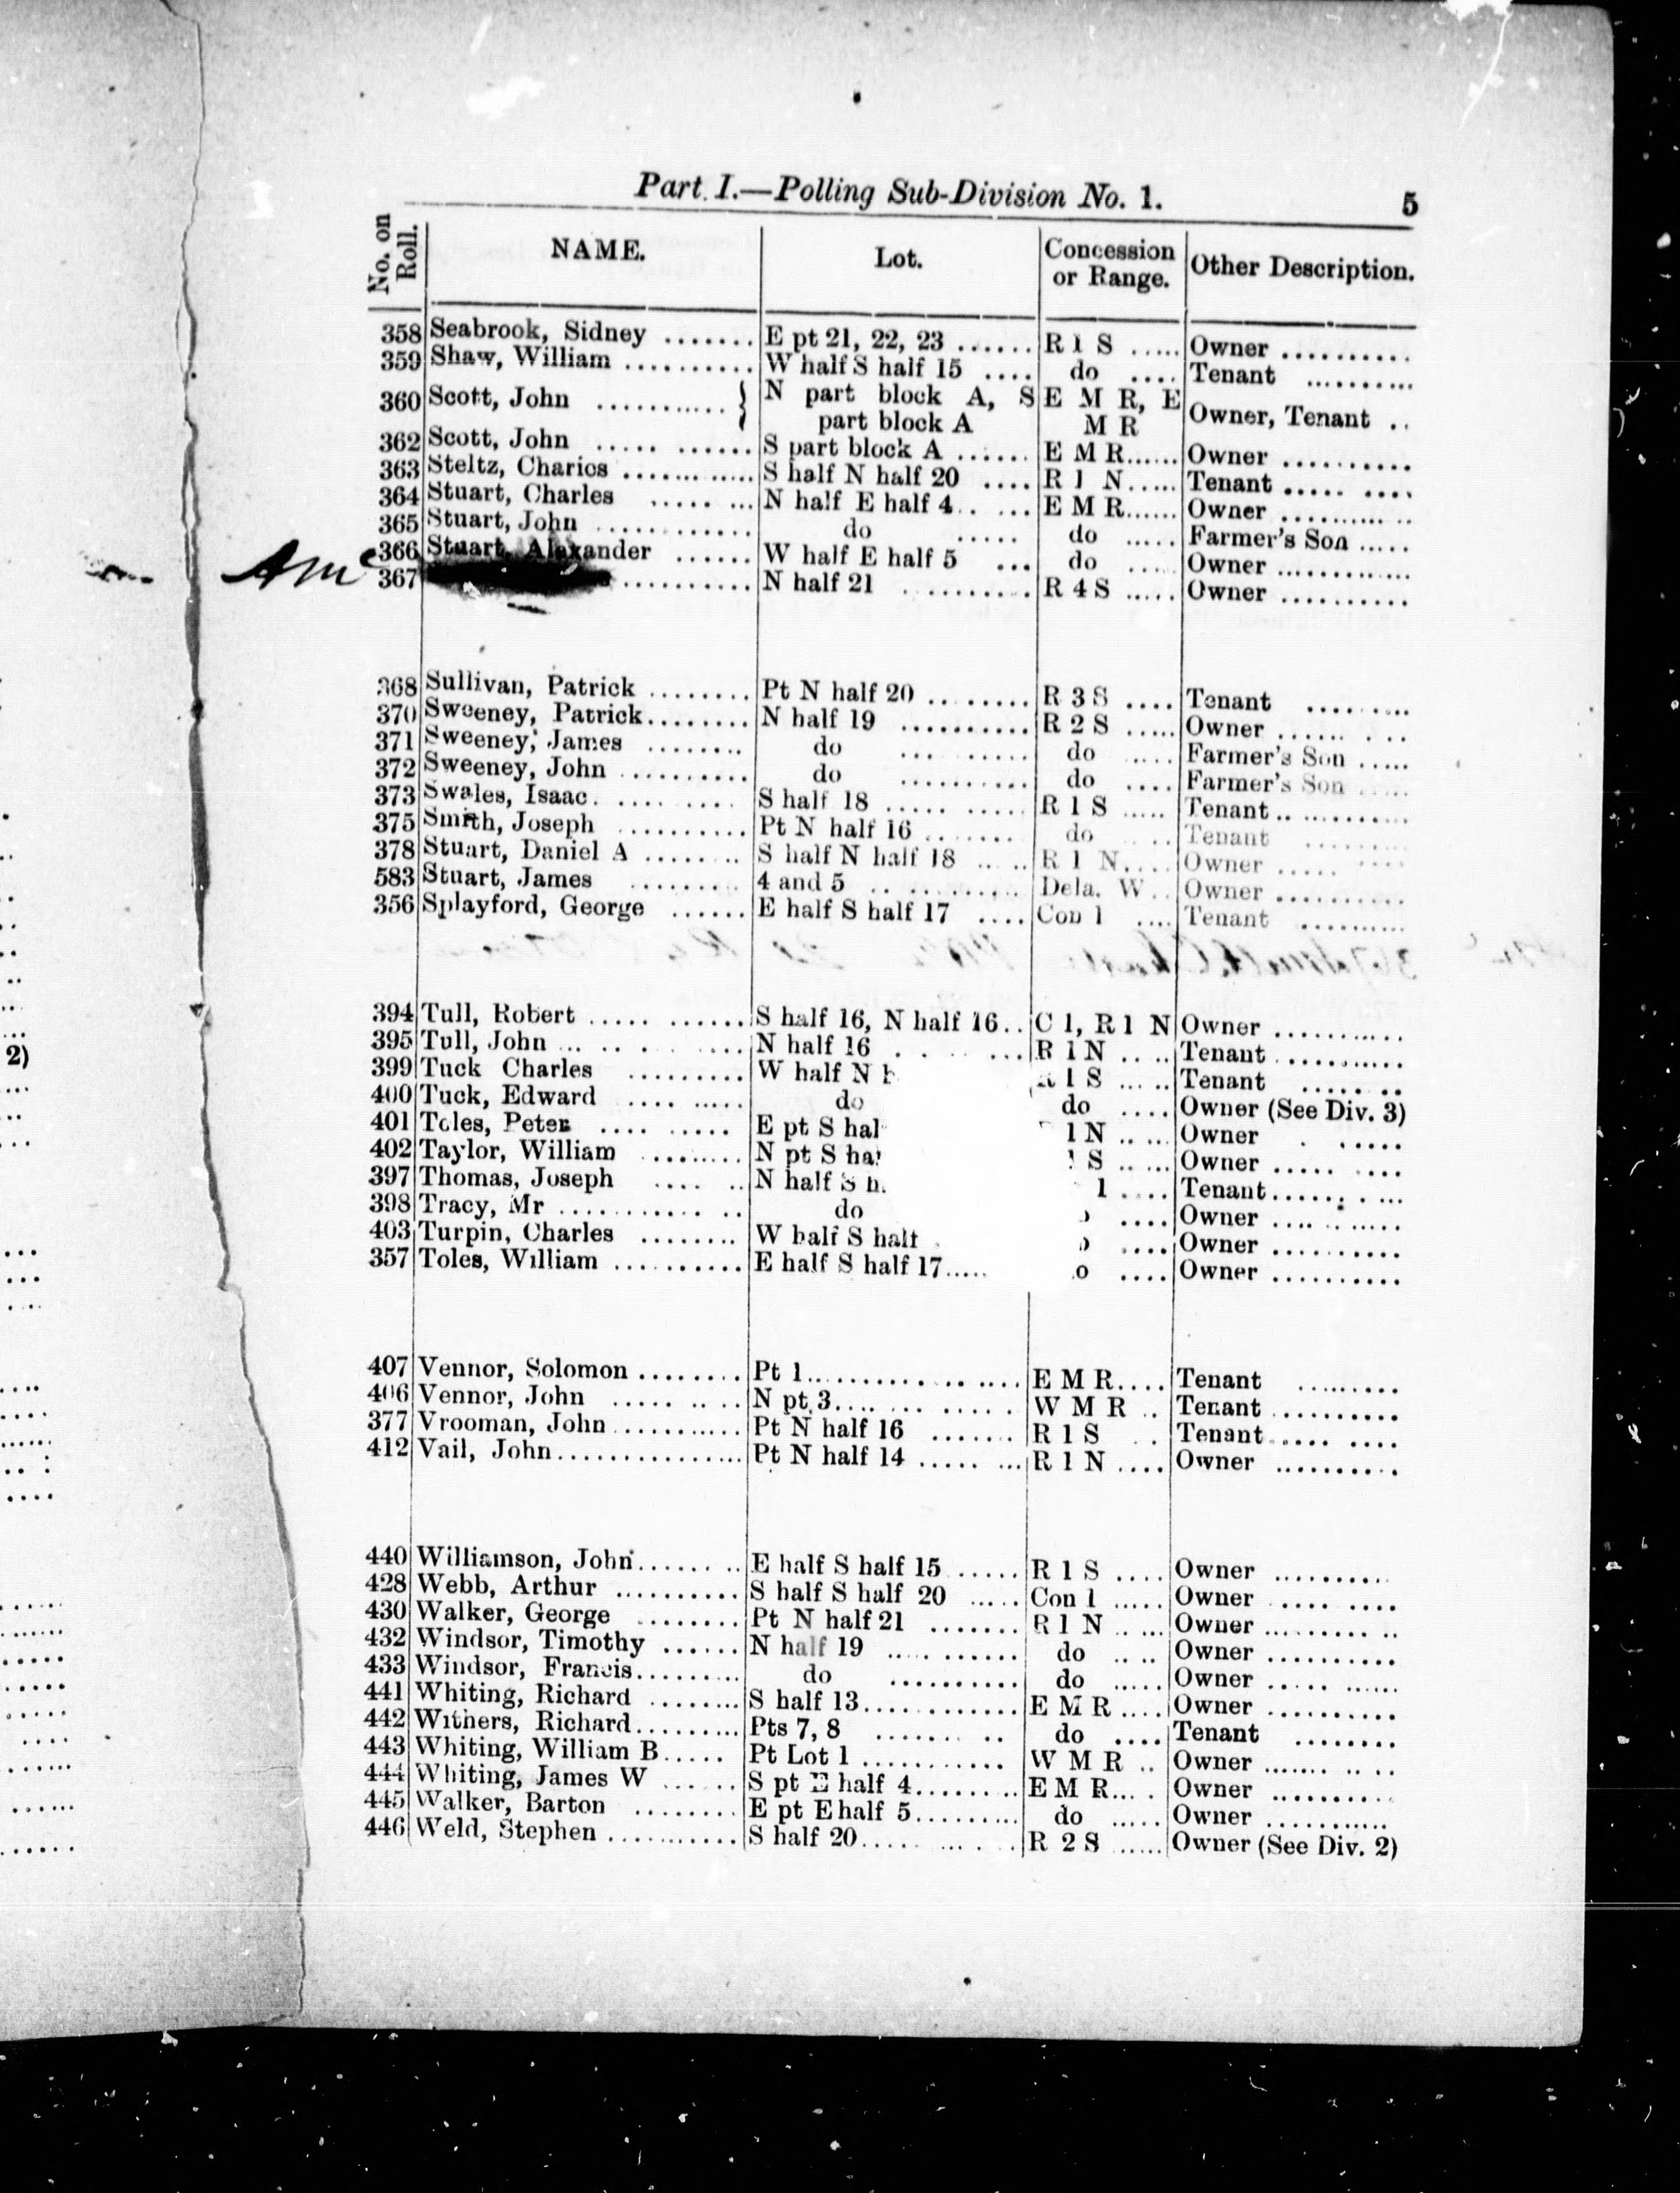 Part I.—Polling Sub-Division No. 1. 5
No. on Roll. NAME. Lot. Concession or Range. Other Description.
358 Seabrook, Sidney ....... E pt 21, 22, 23 ...... R 1 S ..... Owner ..........
359 Shaw, William .......... W half S half 15 .... do .... Tenant ..........
360 Scott, John ........... } N part block A, S part block A E M R, E M R Owner, Tenant ..
362 Scott, John ..... ...... S part block A ...... E M R...... Owner ..........
363 Steltz, Charles ............ S half N half 20 .... R 1 N..... Tenant ..... ....
364 Stuart, Charles ..... ... N half E half 4.. ... E M R...... Owner .......... ..
365 Stuart, John ............ do ..... do ..... Farmer's Son .....
366 Stuart, Alexander ...... W half E half 5 ... do ..... Owner .............
Amc 367 .......... N half 21 .......... R 4 S ..... Owner ..........
368 Sullivan, Patrick ........ Pt N half 20 ........ R 3 S .... Tenant .........
370 Sweeney, Patrick........ N half 19 .......... R 2 S ..... Owner ...... . ...
371 Sweeney, James ........ do ... ...... do ..... Farmer's Son .....
372 Sweeney, John .......... do .......... do .... Farmer's Son .....
373 Swales, Isaac. .......... S half 18 ..... ...... R 1 S ..... Tenant.. ..........
375 Smith, Joseph .......... Pt N half 16 ........ do ..... Tenant ........
378 Stuart, Daniel A ........ S half N half 18 ..... R 1 N.... Owner ..... ....
583 Stuart, James ......... 4 and 5 .. .......... Dela. W.. Owner ..........
356 Splayford, George ...... E half S half 17 .... Con 1 .... Tenant ..........
394 Tull, Robert ..... ....... S half 16, N half 16.. C 1, R 1 N Owner ............
395 Tull, John ... .. ........ N half 16 . ..... ... R 1 N ..... Tenant ............
399 Tuck Charles ......... W half N 1 S ..... Tenant ..... ..
400 Tuck, Edward .... ..... do do .... Owner (See Div. 3)
401 Toles, Peter .... ..... E pt S hal 1 N .. ... Owner . .....
402 Taylor, William ......... N pt S S .. ... Owner ..... ....
397 Thomas, Joseph .... .. N half S 1 .... Tenant...... . ...
398 Tracy, Mr ........... .. do .... Owner ............
403 Turpin, Charles ........ W half S half .... Owner ..........
357 Toles, William .......... E half S half 17..... o .... Owner ..........
407 Vennor, Solomon ........ Pt 1............ .. .... E M R.... Tenant .........
406 Vennor, John ...... .... N pt 3.... ... ..... W M R .. Tenant ..........
377 Vrooman, John........... Pt N half 16 ....... R 1 S .. Tenant..... ....
412 Vail, John............... Pt N half 14 ..... ... R 1 N .... Owner ..........
440 Williamson, John....... .. E half S half 15 ...... R 1 S .... Owner ..........
428 Webb, Arthur .......... S half S half 20 ..... Con 1 ..... Owner ..... ....
430 Walker, George ........ Pt N half 21 ....... R 1 N .. ... Owner .......... ..
432 Windsor, Timothy ...... N half 19 .. ........ do .. .. Owner ..........
433 Windsor, Francis......... do .......... do ..... Owner ..... ......
441 Whiting, Richard ........ S half 13............ E M R .... Owner ..........
442 Withers, Richard......... Pts 7, 8 ....... .. do .... Tenant ........
443 Whiting, William B..... Pt Lot 1 ........... W M R .. Owner ....... .. ..
444 Whiting, James W ...... S pt E half 4......... E M R.... Owner ..........
445 Walker, Barton ........ E pt E half 5......... do ..... Owner ...........
446 Weld, Stephen ........... S half 20..... ... . .. R 2 S ...... Owner (See Div. 2)
2)